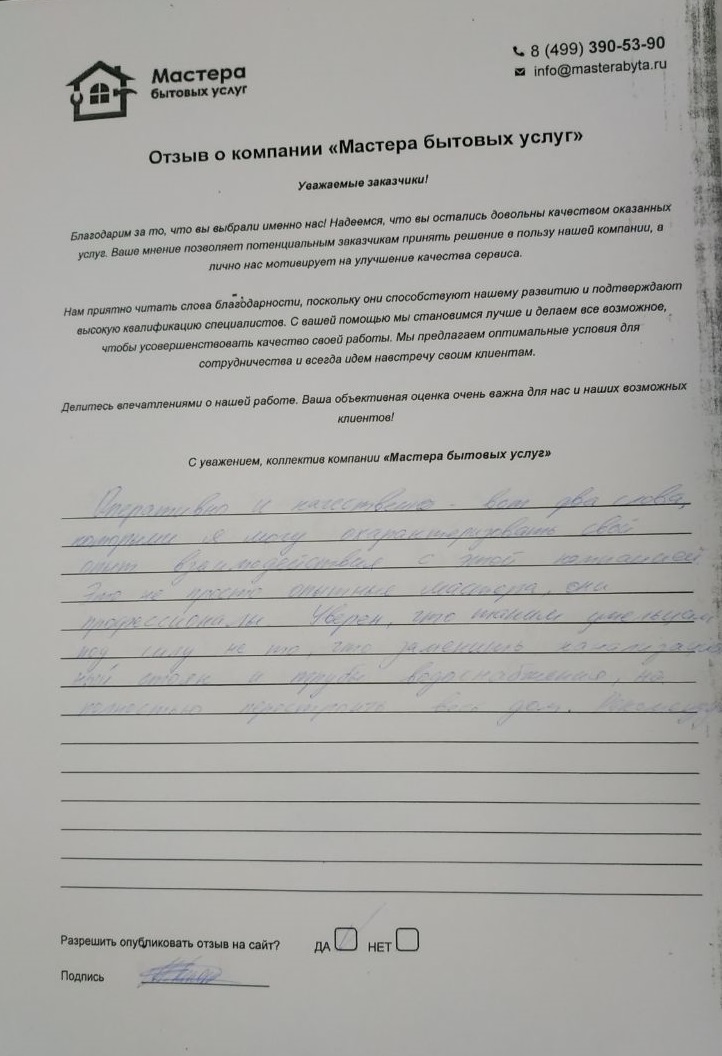 Мастера
бытовых услуг
8 (499) 390-53-90
info@masterabyta.ru
Отзыв о компании «Мастера бытовых услуг»
Уважаемые заказчики!
Благодарим за то, что вы выбрали именно нас! Надеемся, что вы остались довольны качеством оказанных
услуг. Ваше мнение позволяет потенциальным заказчикам принять решение в пользу нашей компании, а
лично нас мотивирует на улучшение качества сервиса.
Нам приятно читать слова благодарности, поскольку они способствуют нашему развитию и подтверждают
высокую квалификацию специалистов. С вашей помощью мы становимся лучше и делаем все возможное,
чтобы усовершенствовать качество своей работы. Мы предлагаем оптимальные условия для
сотрудничества и всегда идем навстречу своим клиентам.
Делитесь впечатлениями о нашей работе. Ваша объективная оценка очень важна для нас и наших возможных
клиентов!
С уважением, коллектив компании «Мастера бытовых услуг»
Оперативно и качественно - вот два слова,
которыми я могу охарактеризовать свой
опыт взаимодействия с этой компанией
Это не просто опытные мастера, они
профессионалы. Уверен, что таким умельцам
под силу не то, что заменить канализацион
ный стояк и трубы водоснабжения, но
полностью перестроить весь дом.
Разрешить опубликовать отзыв на сайт? ДА НЕТ
Подпись